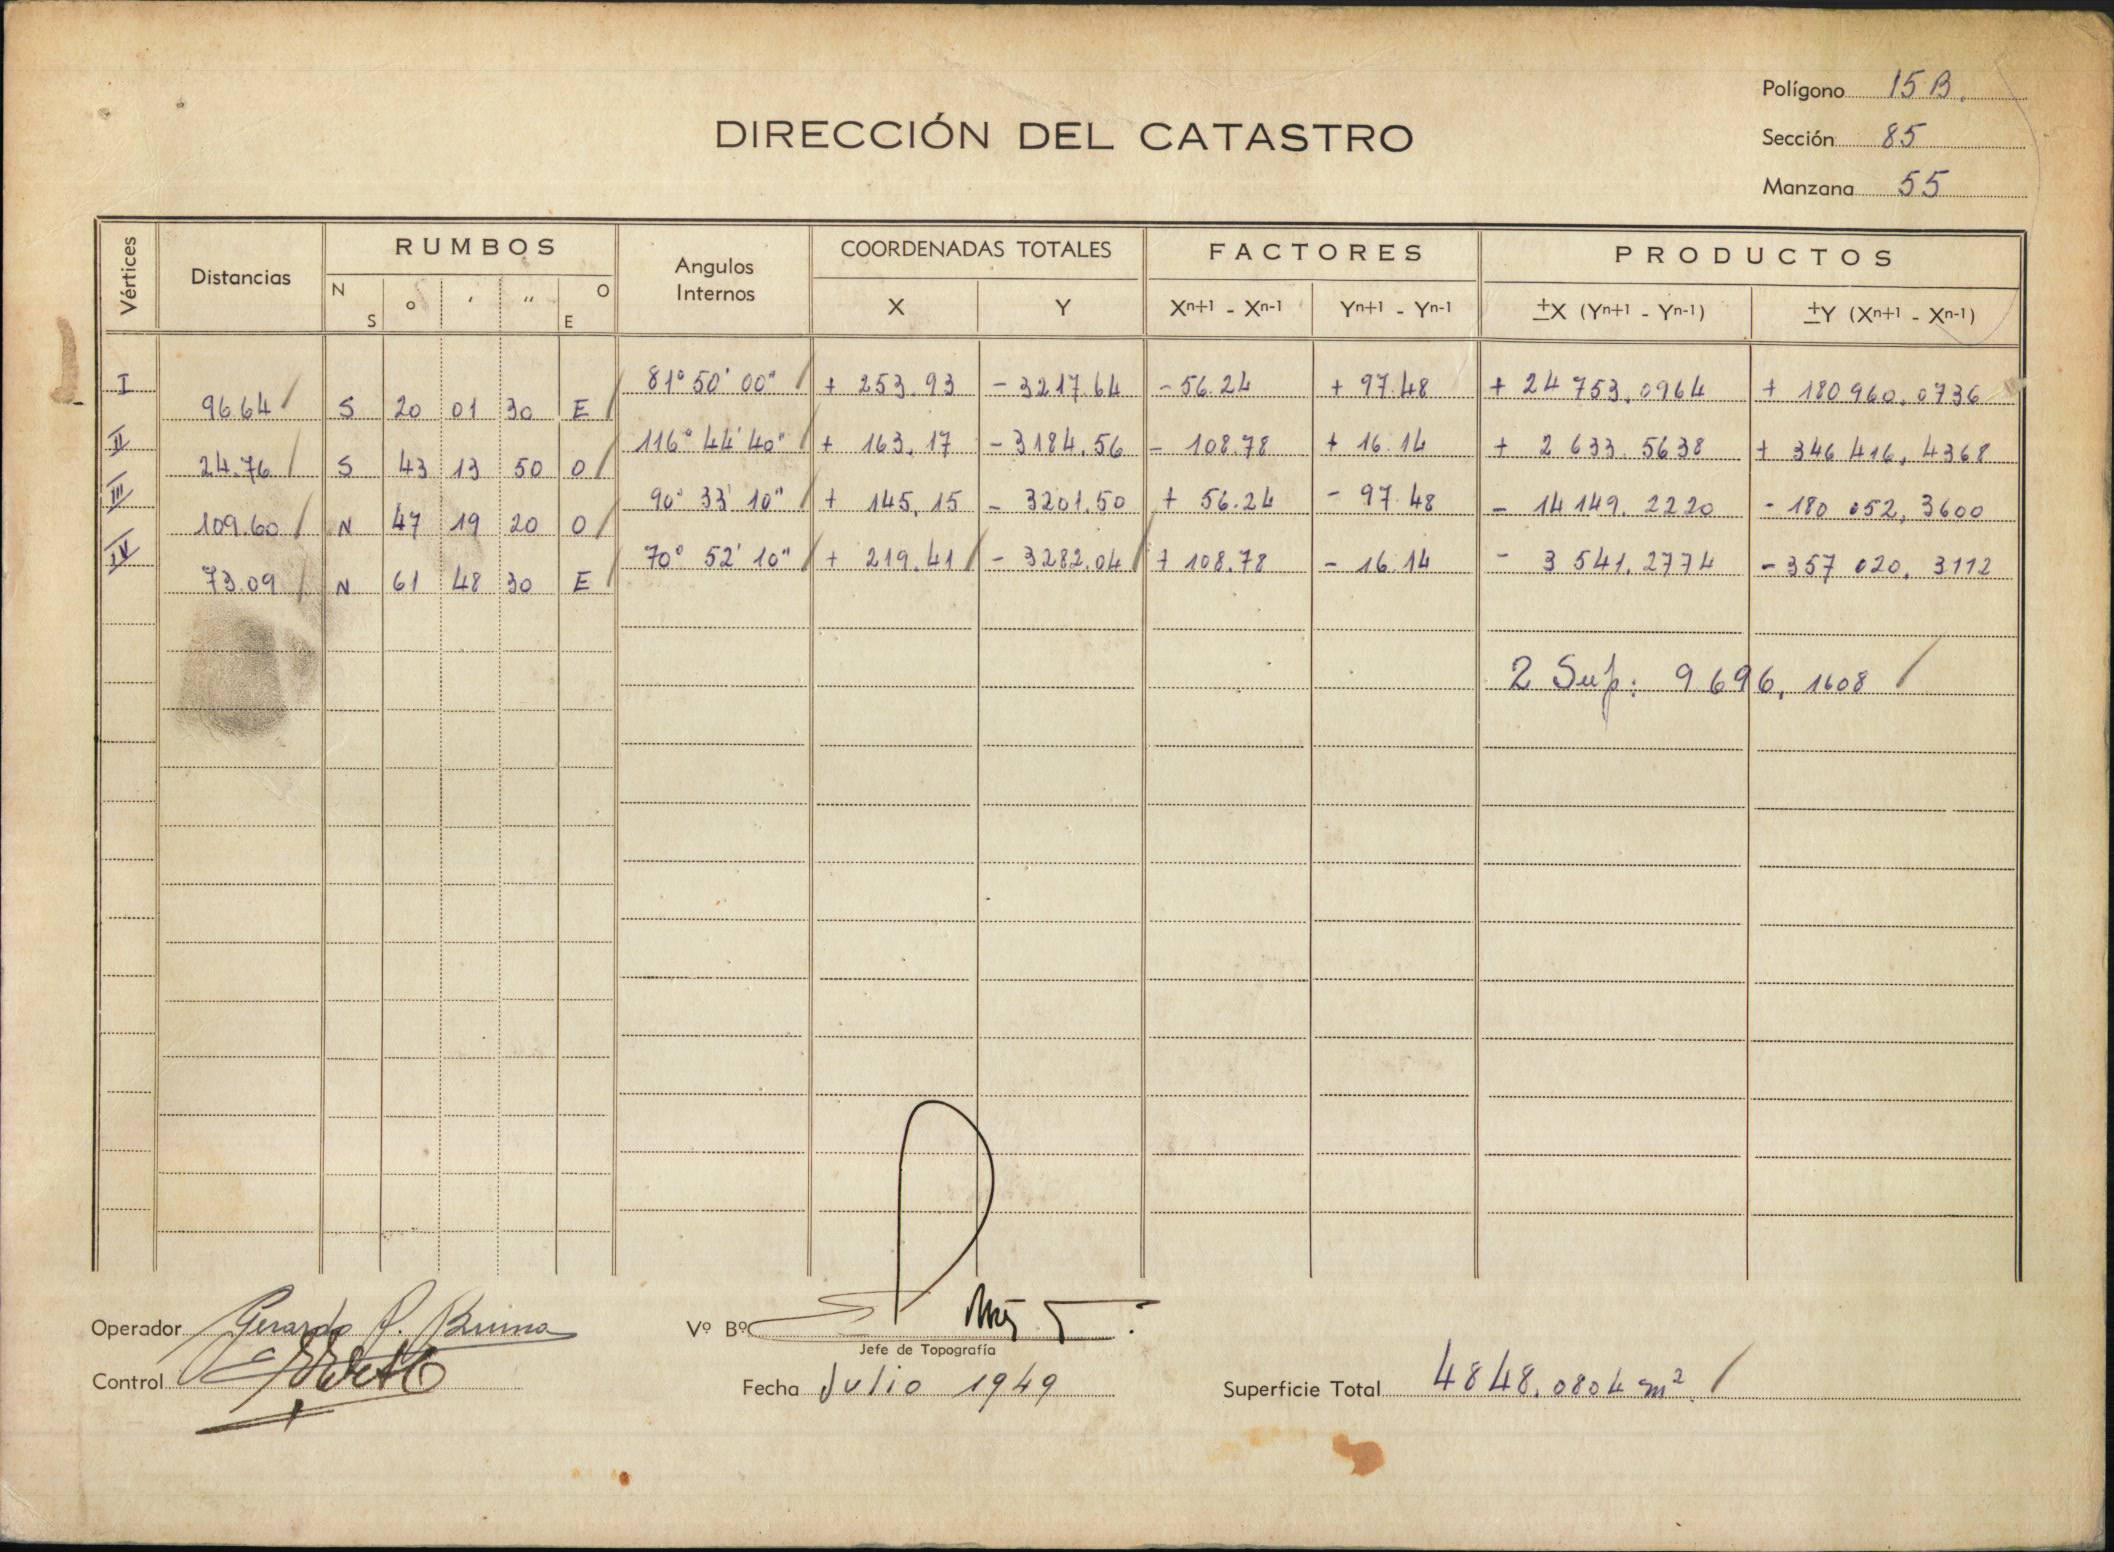 Polígono 15 B.
DIRECCIÓN DEL CATASTRO
Sección 85
Manzana 55
Vértices Distancias RUMBOS Angulos Internos COORDENADAS TOTALES FACTORES PRODUCTOS
N S ° ' " O E X Y Xn+1 - Xn-1 Yn+1 - Yn-1 ±X (Yn+1 - Yn-1) ±Y (Xn+1 - Xn-1)
I 81° 50' 00" + 253.93 - 3217.64 - 56.24 + 97.48 + 24 753.0964 + 180 960.0736
96.64 S 20 01 30 E
II 116° 44' 40" + 163.17 - 3184.56 - 108.78 + 16.14 + 2 633.5638 + 346 416,4368
24.76 S 43 13 50 O
III 90° 33' 10" + 145,15 - 3201.50 + 56.24 - 97.48 - 14 149.2220 - 180 052,3600
109.60 N 47 19 20 O
IV 70° 52' 10" + 219.41 - 3282.04 + 108.78 - 16.14 - 3 541.2774 - 357 020,3112
73.09 N 61 48 30 E
2 Sup: 9 696,1608
Operador Gerardo
Vº Bº
Jefe de Topografía
Control
Fecha Julio 1949
Superficie Total 4848.0804 m²